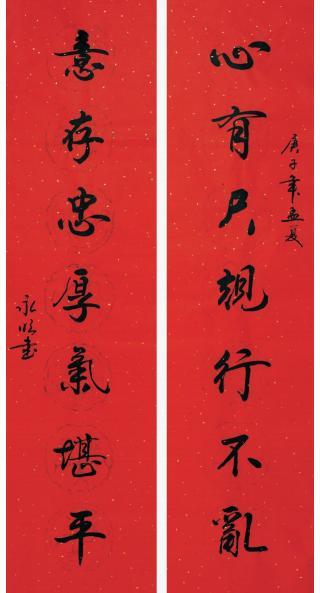 心有尺規行不亂
庚子年孟夏
意存忠厚氣堪平
永明書